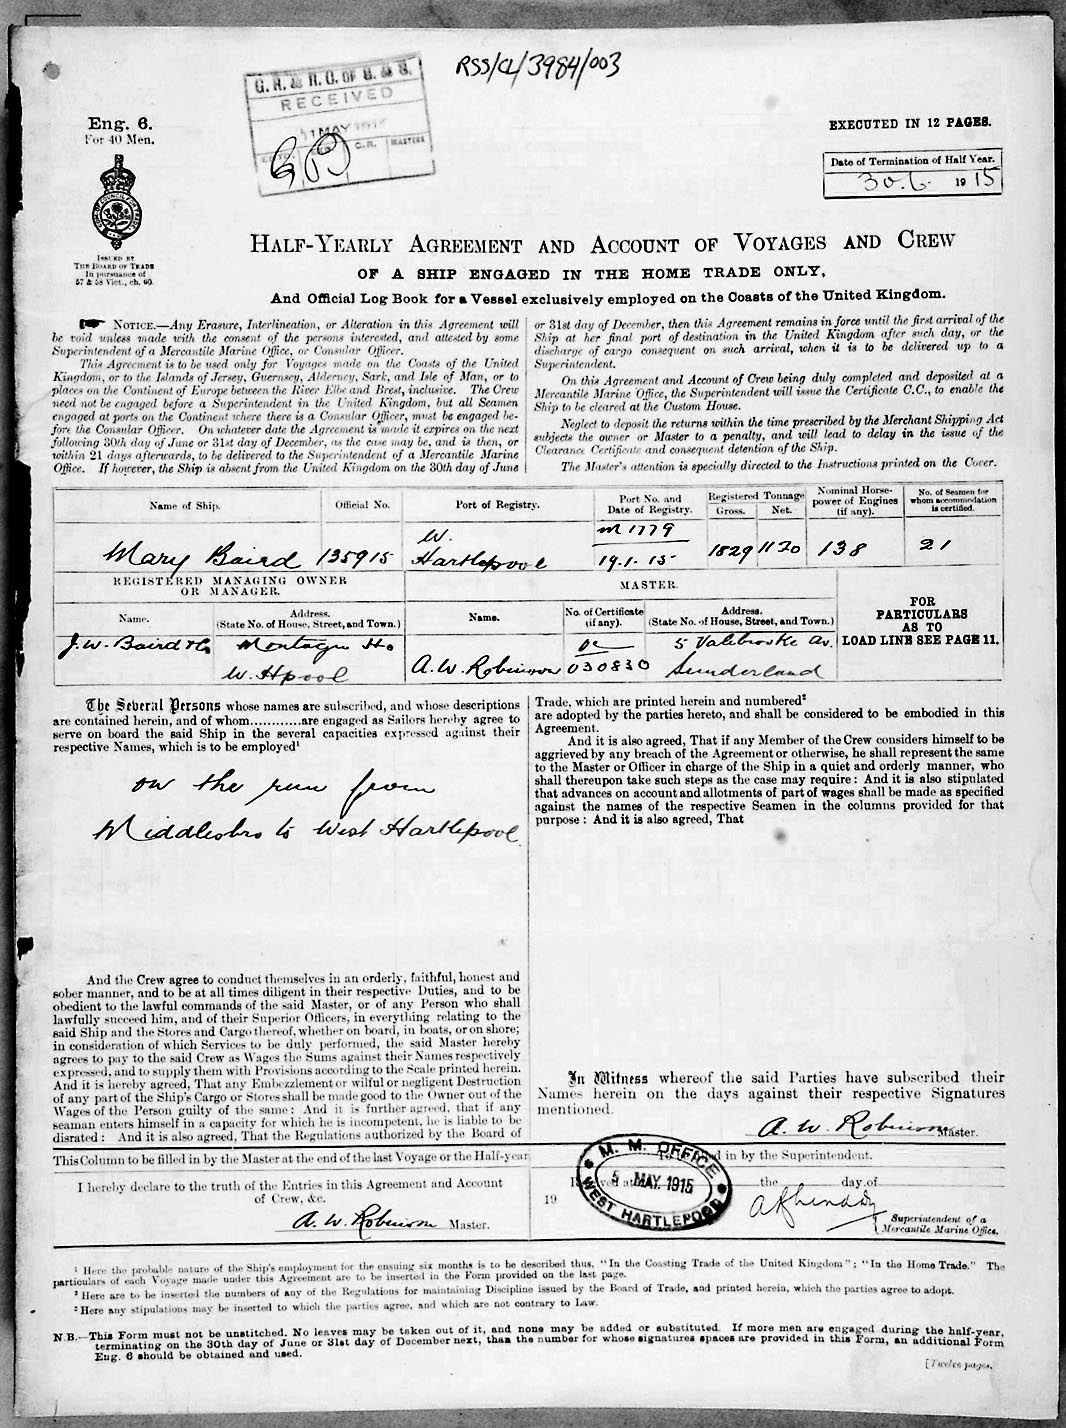 RSS/CL/3984/003
G.R. & R.O. OF S. & S.
RECEIVED
MAY
C.R.
MASTERS
Eng. 6.
For 40 Men.
EXECUTED IN 12 PAGES.
Date of Termination of Half Year.
30.6. 1915
ISSUED BY
THE BOARD OF TRADE
In pursuance of
57 & 58 Vict., ch. 60.
HALF-YEARLY AGREEMENT AND ACCOUNT OF VOYAGES AND CREW
OF A SHIP ENGAGED IN THE HOME TRADE ONLY,
And Official Log Book for a Vessel exclusively employed on the Coasts of the United Kingdom.
NOTICE.—Any Erasure, Interlineation, or Alteration in this Agreement will
be void unless made with the consent of the persons interested, and attested by some
Superintendent of a Mercantile Marine Office, or Consular Officer.
This Agreement is to be used only for Voyages made on the Coasts of the United
Kingdom, or to the Islands of Jersey, Guernsey, Alderney, Sark, and Isle of Man, or to
places on the Continent of Europe between the River Elbe and Brest, inclusive. The Crew
need not be engaged before a Superintendent in the United Kingdom, but all Seamen
engaged at ports on the Continent where there is a Consular Officer, must be engaged be-
fore the Consular Officer. On whatever date the Agreement is made it expires on the next
following 30th day of June or 31st day of December, as the case may be, and is then, or
within 21 days afterwards, to be delivered to the Superintendent of a Mercantile Marine
Office. If however, the Ship is absent from the United Kingdom on the 30th day of June
or 31st day of December, then this Agreement remains in force until the first arrival of the
Ship at her final port of destination in the United Kingdom after such day, or the
discharge of cargo consequent on such arrival, when it is to be delivered up to a
Superintendent.
On this Agreement and Account of Crew being duly completed and deposited at a
Mercantile Marine Office, the Superintendent will issue the Certificate C.C., to enable the
Ship to be cleared at the Custom House.
Neglect to deposit the returns within the time prescribed by the Merchant Shipping Act
subjects the owner or Master to a penalty, and will lead to delay in the issue of the
Clearance Certificate and consequent detention of the Ship.
The Master's attention is specially directed to the Instructions printed on the Cover.
Name of Ship. Official No. Port of Registry. Port No. and Date of Registry. Registered Tonnage Gross. Net. Nominal Horse-power of Engines (if any). No. of Seamen for whom accommodation is certified.
Mary Baird 135915 W. Hartlepool M 1779 19.1.15 1829 1120 138 21
REGISTERED MANAGING OWNER
OR MANAGER.
MASTER.
Name. Address. (State No. of House, Street, and Town.) Name. No. of Certificate (if any). Address. (State No. of House, Street, and Town.)
FOR
PARTICULARS
AS TO
LOAD LINE SEE PAGE 11.
J.W. Baird & Co Montague Ho
W. Hpool
A.W. Robinson 030830 5 Av.
Sunderland
The Several Persons whose names are subscribed, and whose descriptions
are contained herein, and of whom............are engaged as Sailors hereby agree to
serve on board the said Ship in the several capacities expressed against their
respective Names, which is to be employed¹
on the run from
Middlesbro to West Hartlepool
And the Crew agree to conduct themselves in an orderly, faithful, honest and
sober manner, and to be at all times diligent in their respective Duties, and to be
obedient to the lawful commands of the said Master, or of any Person who shall
lawfully succeed him, and of their Superior Officers, in everything relating to the
said Ship and the Stores and Cargo thereof, whether on board, in boats, or on shore;
in consideration of which Services to be duly performed, the said Master hereby
agrees to pay to the said Crew as Wages the Sums against their Names respectively
expressed, and to supply them with Provisions according to the Scale printed herein.
And it is hereby agreed, That any Embezzlement or wilful or negligent Destruction
of any part of the Ship's Cargo or Stores shall be made good to the Owner out of the
Wages of the Person guilty of the same: And it is further agreed, that if any
seaman enters himself in a capacity for which he is incompetent, he is liable to be
disrated: And it is also agreed, That the Regulations authorized by the Board of
Trade, which are printed herein and numbered²
are adopted by the parties hereto, and shall be considered to be embodied in this
Agreement.
And it is also agreed, That if any Member of the Crew considers himself to be
aggrieved by any breach of the Agreement or otherwise, he shall represent the same
to the Master or Officer in charge of the Ship in a quiet and orderly manner, who
shall thereupon take such steps as the case may require: And it is also stipulated
that advances on account and allotments of part of wages shall be made as specified
against the names of the respective Seamen in the columns provided for that
purpose: And it is also agreed, That
In Witness whereof the said Parties have subscribed their
Names herein on the days against their respective Signatures
mentioned.
A. W. Robinson Master.
This Column to be filled in by the Master at the end of the last Voyage or the Half-year
I hereby declare to the truth of the Entries in this Agreement and Account
of Crew, &c.
A. W. Robinson Master.
in by the Superintendent.
the day of
19
M. M. OFFICE
5 MAY 1915
WEST HARTLEPOOL
Superintendent of a
Mercantile Marine Office.
¹ Here the probable nature of the Ship's employment for the ensuing six months is to be described thus, "In the Coasting Trade of the United Kingdom"; "In the Home Trade." The
particulars of each Voyage made under this Agreement are to be inserted in the Form provided on the last page.
² Here are to be inserted the numbers of any of the Regulations for maintaining Discipline issued by the Board of Trade, and printed herein, which the parties agree to adopt.
³ Here any stipulations may be inserted to which the parties agree, and which are not contrary to Law.
N.B.—This Form must not be unstitched. No leaves may be taken out of it, and none may be added or substituted. If more men are engaged during the half-year,
terminating on the 30th day of June or 31st day of December next, than the number for whose signatures spaces are provided in this Form, an additional Form
Eng. 6 should be obtained and used.
[Twelve pages.